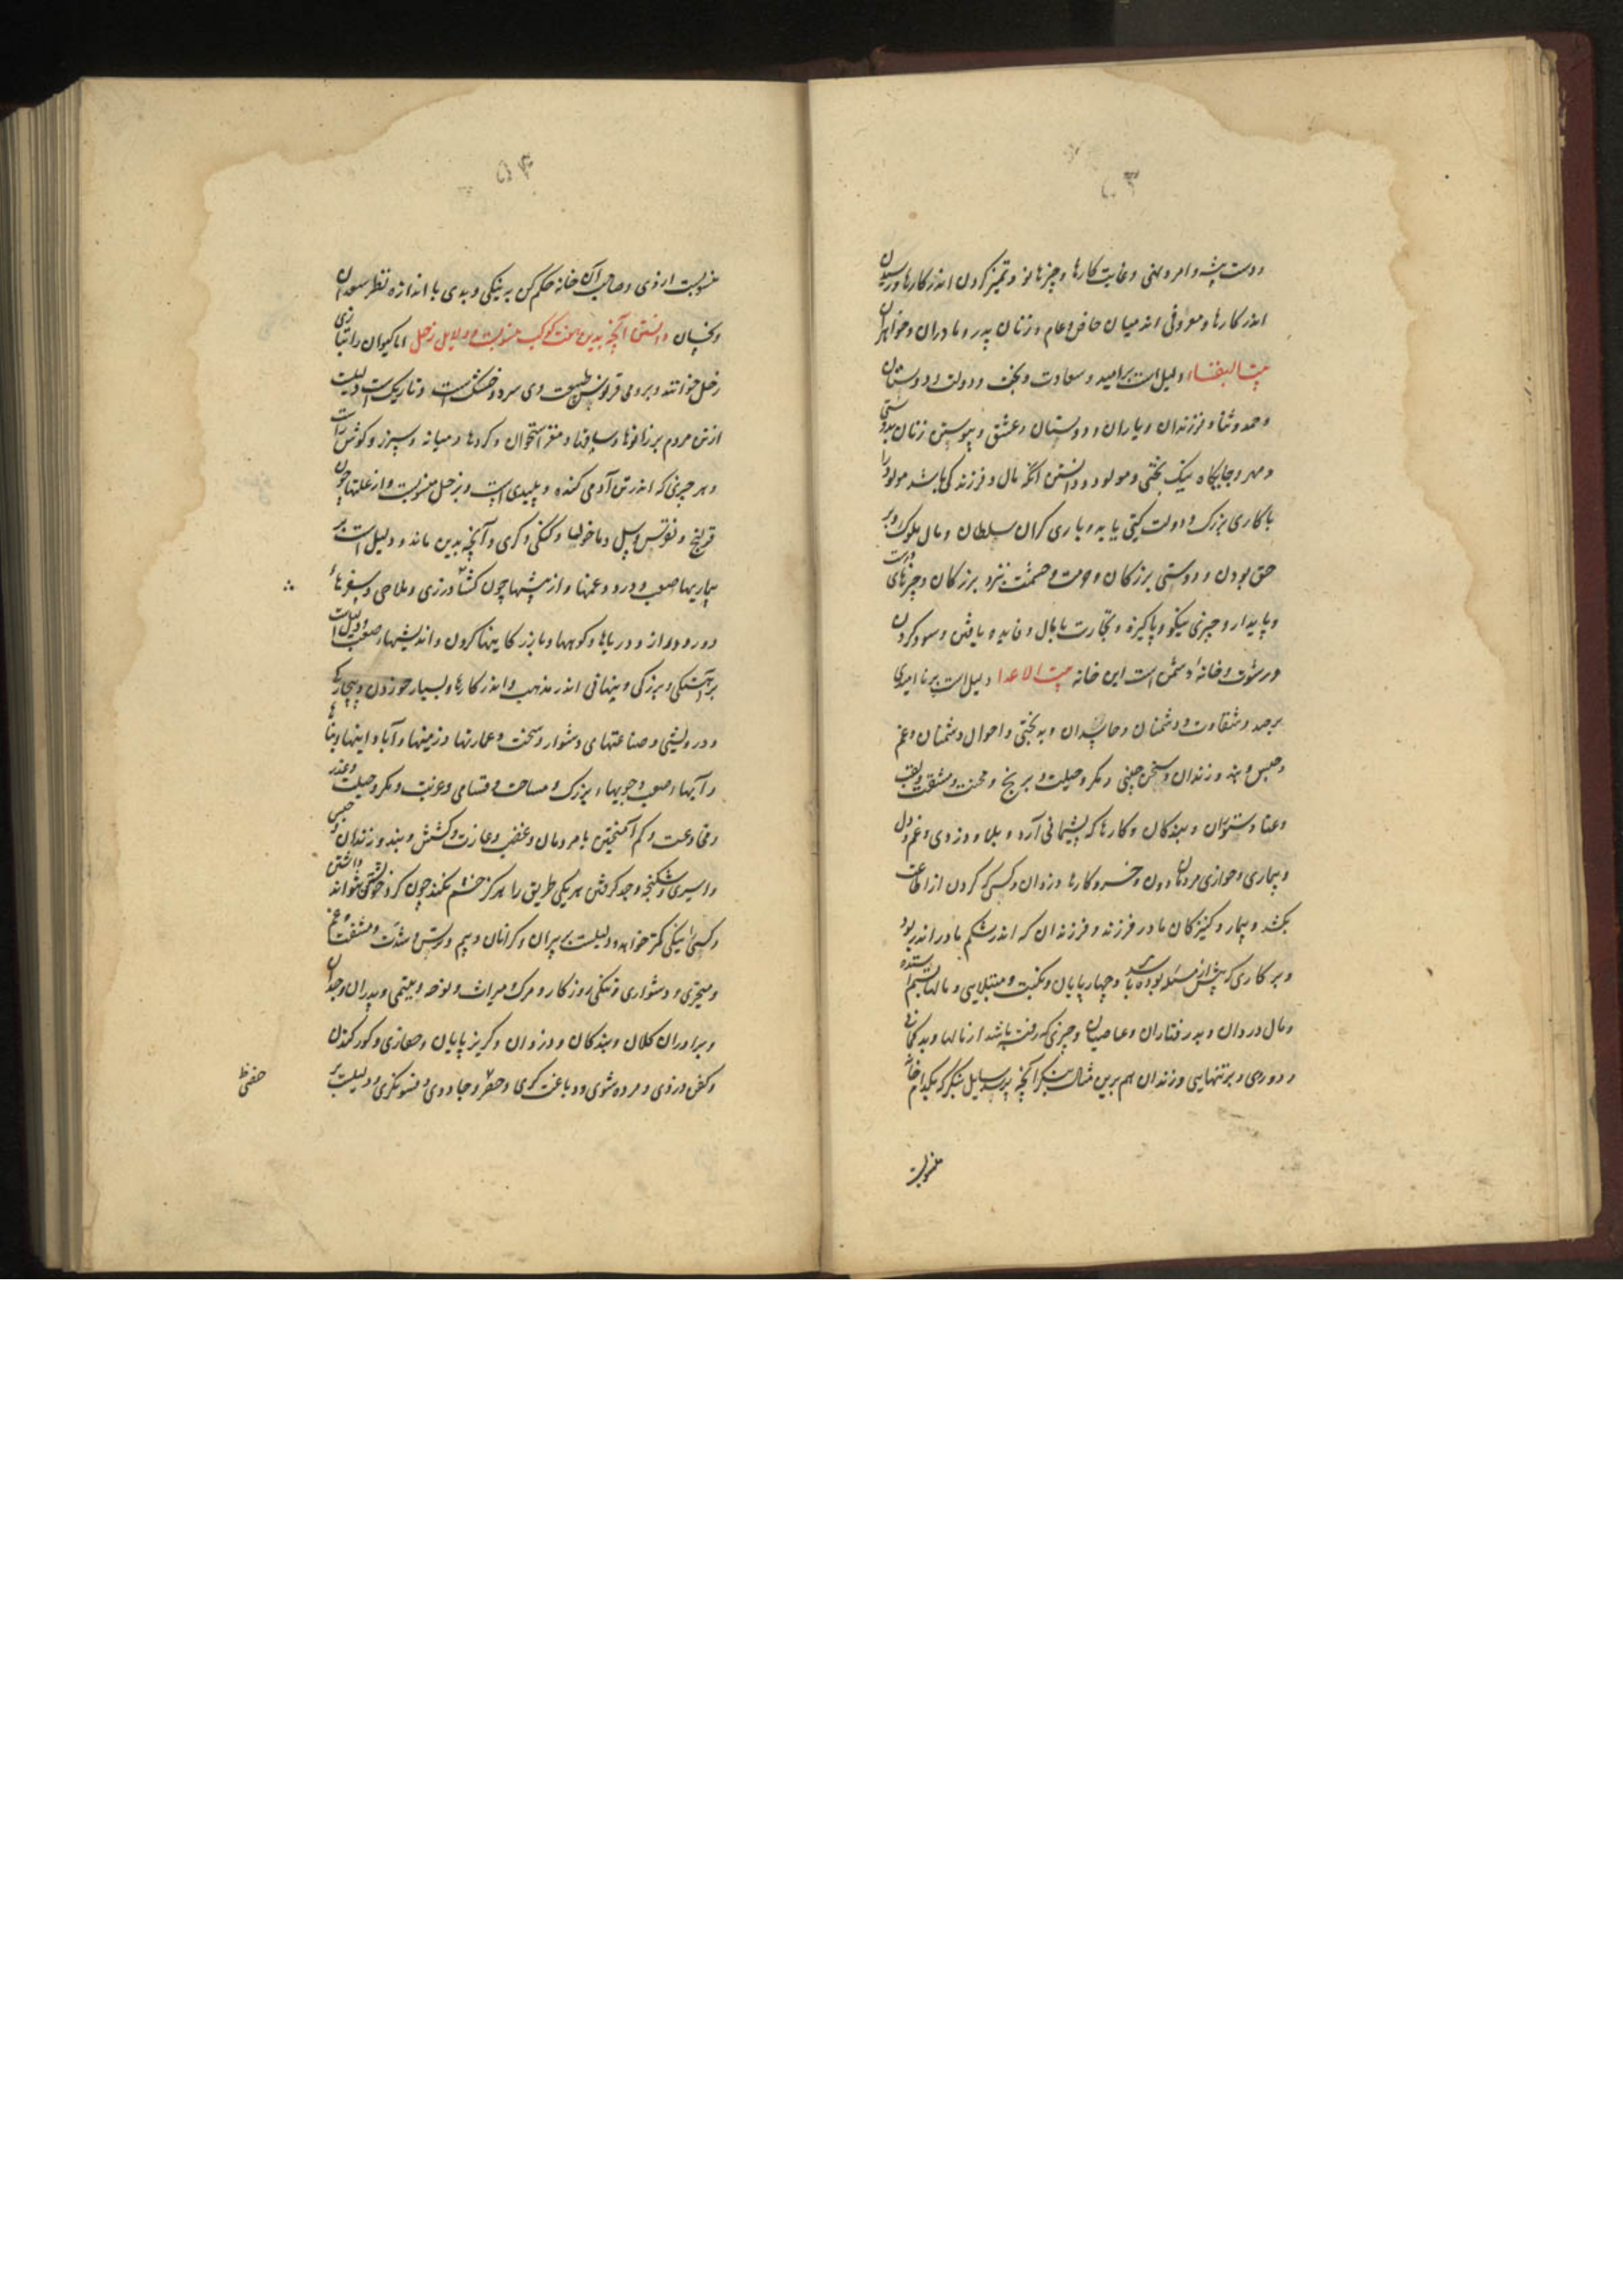 ۵۳
و دست پیشه و امر و نهی و غایت کارها و چیزهای نو و تمیز کردن اندر کارها و رسیدن
اندر کارها و معروفی اندر میان خاص و عام و زنان پدر و مادران و خواهران
بیت دلیل است بر امید و سعادت و بخت و دولت و دوستان
و حمد و ثنا و فرزندان و یاران و دوستان و عشق و پیوستن زنان بدوستی
و مهر و جایگاه نیک بختی و مولود و دانستن آنکه مال و فرزند کی باشد مولود را
با کاری بزرگ و دولت گیتی یابد و یاری گران سلطان و مال ملوک و بر
حق بودن و دوستی بزرگان و حرمت و حشمت نزد بزرگان و چیزهای درست
و پایدار و چیزی نیکو و پاکیزه و تجارت با مال و فایده یافتن و سود کردن
و رشوت و خانه دشمن است این خانه بیت الاعدا دلیل است بر ناامیدی
بر حسد و شقاوت و دشمنان و حاسدان و بدبختی و احوال دشمنان و غم
و حبس و بند و زندان و سخن چینی و مکر و حیلت و بر رنج و محنت و مشقت و تعب
و عنا و ستوران و بندگان و کارها که پشیمانی آرد و بلا و دزدی و غم دل
و بیماری و خواری مردمان دون و خسر و کارها و دزدان و کسی که گردن از طاعت
بکشد و بیمار و کنیزکان مادر فرزند و فرزندان که اندر شکم مادر اندر بود
و بر کاری که پیش از مسئله بوده باشد و چهارپایان و نکبت و مبتلایی و مالها بستم استده
و مال دزدان و بدرفتاران و عاصیان و چیزی که رفته باشد از مالها و بدگمانی
و دوری و بر تنهایی و زندان هم برین مثال بنگر آنچه پرسد سایل بنگر که بکدام خانه
منسوبست
۵۴
منسوبست از وی و صاحب آن خانه حکم کن به نیکی و بدی با اندازه نظر سعدان
و نحسان دانستن آنچه بدین هفت کوکب منسوبست و دلایل زحل اما کیوان را بتازی
زحل خوانند و برومی قرونس طبیعت وی سرد و خشک است و تاریک است دلیلست
از تن مردم بر زانوها و ساقها و مغز استخوان و گردها و میانه و سپرز و گوش راست
و هر چیزی که اندر تن آدمی گنده و پلیدی است و بزحل منسوبست و از علتها چون
قولنج و نقرس و سل و ماخولیا و گنگی و کری و آنچه بدین ماند و دلیل است بر
بیماریها صعب و درد و غمها و از پیشها چون کشاورزی و ملاحی و سفرهاء
دور و دراز و دریاها و کوهها و با بزرگان کینها کردن و اندیشیها صعب و دلیل است
بر آهستگی و بزرگی و پنهانی اندر مذهب و اندر کارها و بسیار خوردن و بیچارگی
و درویشی و صناعتهای دشوار و سخت و عمارتها و زمینها و آبادانیها و بناها
و آبها صعب و جویهاء بزرگ و مساحت و قسامی و غربت و مکر و حیلت و غدر
و مخادعت و کم آمیختن با مردمان و غضب و غارت و کشتن و بند و زندان و حبس
و اسیری و شکنجه و جد گرفتن هر یکی طریق را هرگز خشم نکند چون کرد خویشتن داشتن نتواند
و کس را نیکی کمتر خواهد و دلیلست بر پیران و گرانان و بیم و ترس و شدت و مشقت و غم
و متحیری و دشواری و تنگی روزگار و مرگ و میراث و نوحه و یتیمی و پدران و جدان
و برادران کلان و بندگان و دزدان و گریزپایان و حفاری و گور کندن
و کفن دزدی و مرده شوی و دباغت گری و حقد و جادوی و فسونگری و دلیلست بر
حفظ